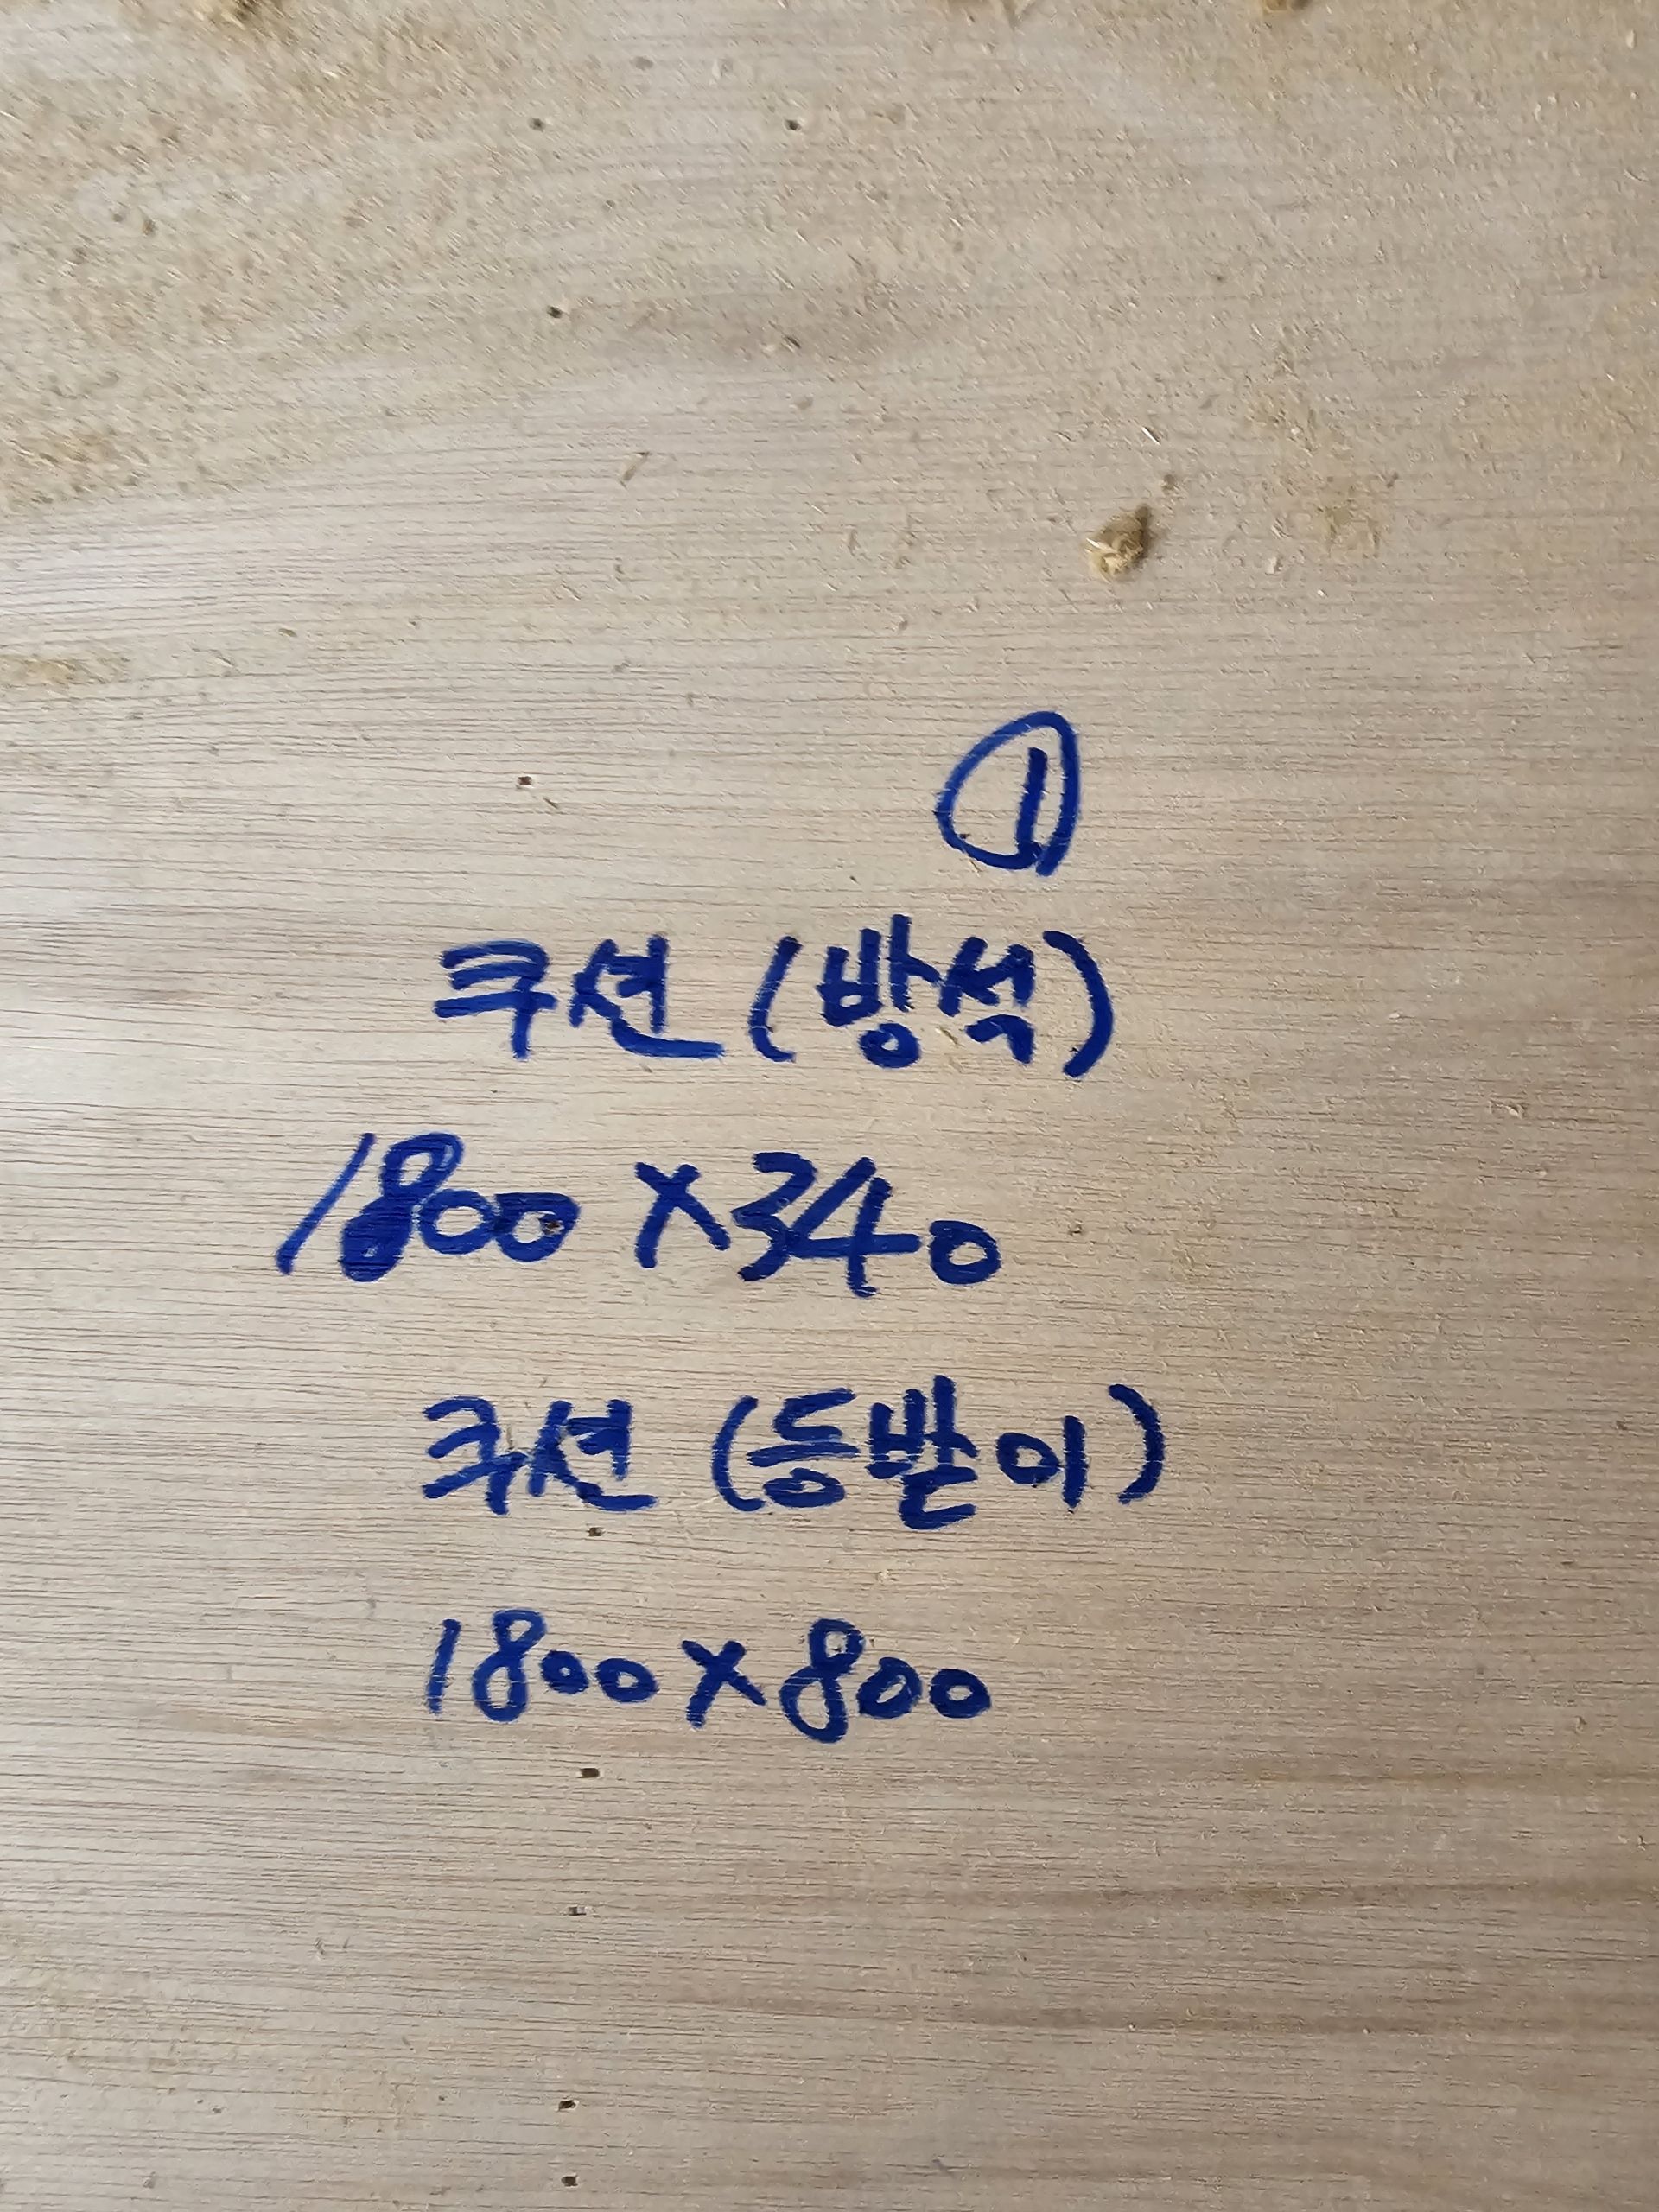 ①
쿠션 (방석)
1800 x 340
쿠션 (등받이)
1800 x 800